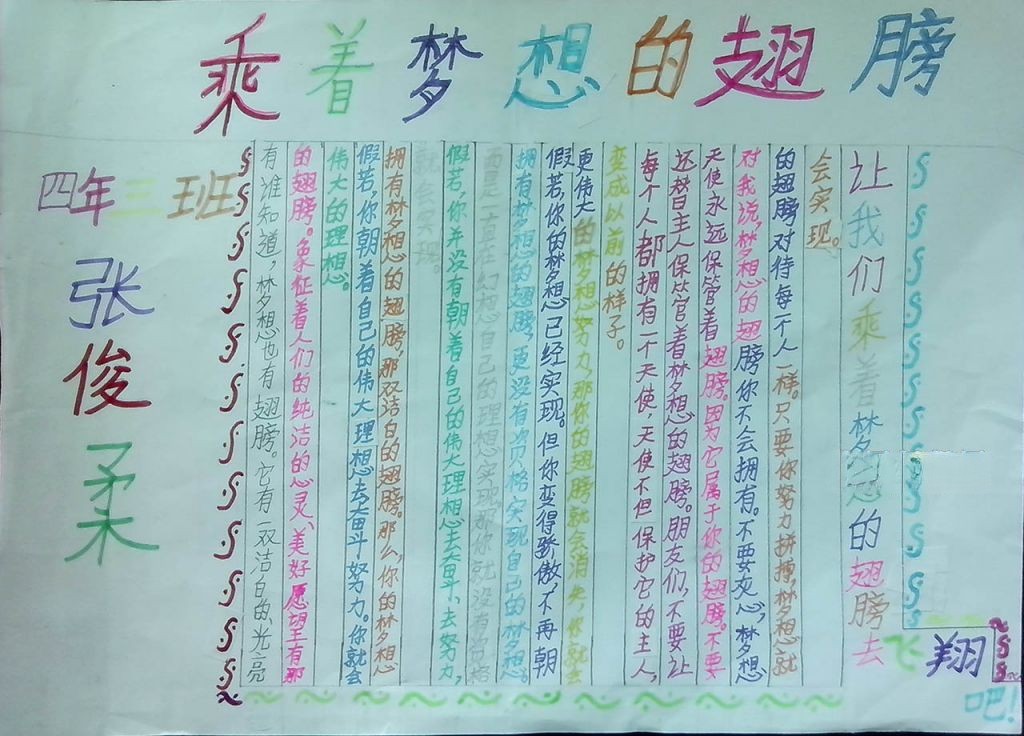 乘着梦想的翅膀
四年三班
张俊柔
有谁知道，梦想也有翅膀。它有一双洁白的、光亮
的翅膀。象征着人们的纯洁的心灵、美好愿望有那
伟大的理想。
假若，你朝着自己的伟大理想去奋斗努力。你就会
拥有梦想的翅膀，那双洁白的翅膀。那么，你的梦想
就会实现。
假若，你并没有朝着自己的伟大理想去奋斗、去努力，
而是一直在幻想自己的理想实现那你就没有资格
拥有梦想的翅膀，更没有资格实现自己的梦想。
假若你的梦想已经实现。但你变得骄傲，不再朝
更伟大的梦想努力，那你的翅膀就会消失，你就会
变成以前的样子。
每个人都拥有一个天使，天使不但保护它的主人，
还替主人保管着梦想的翅膀。朋友们，不要让
天使永远保管着翅膀。因为它属于你的翅膀。不要
对我说，梦想的翅膀你不会拥有。不要灰心，梦想
的翅膀对待每个人一样。只要你努力拼搏，梦想就
会实现。
让我们乘着梦想的翅膀去飞翔吧！